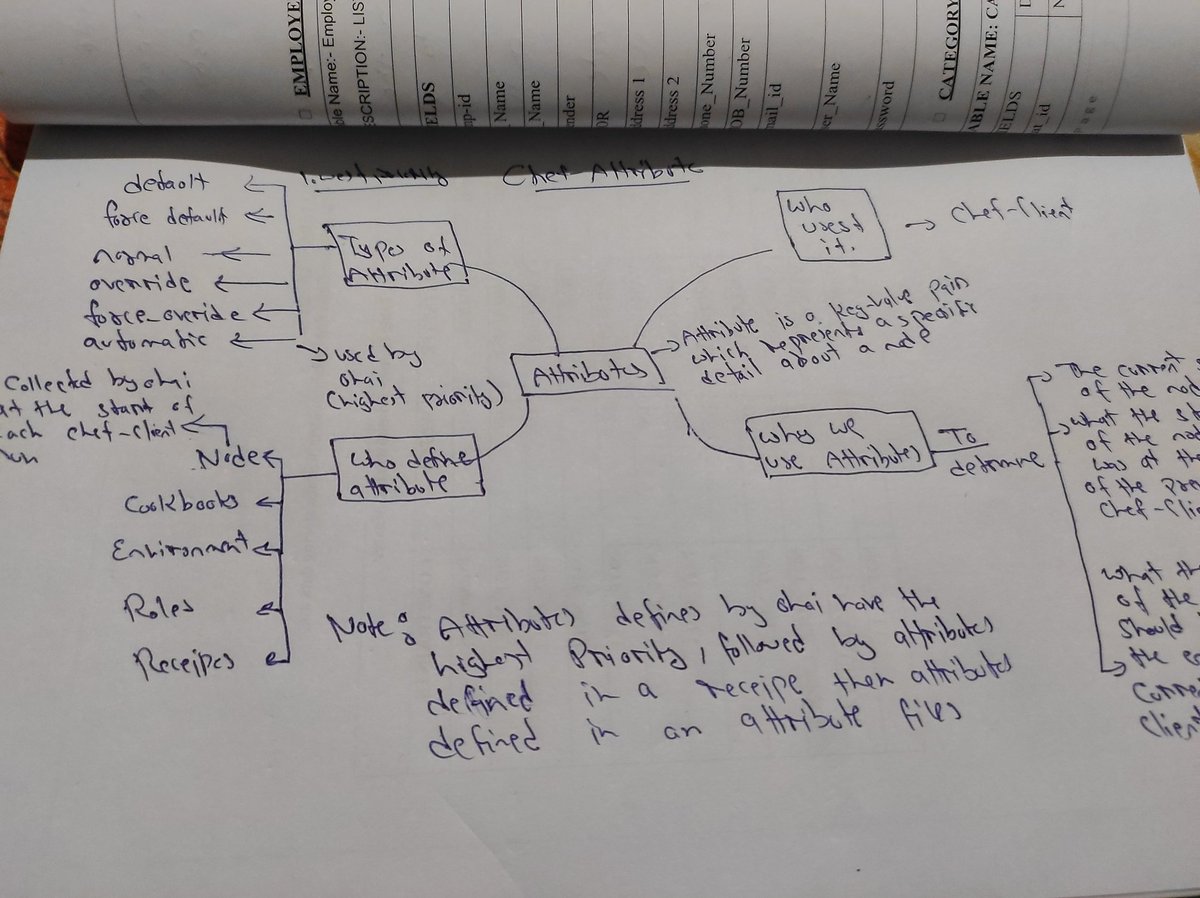 EMPLOYE
ble Name:- Employ
SCRIPTION:- LIS
ELDS
mp-id
Name
Name
nder
OR
ddress 1
ddress 2
one_Number
OB_Number
mail_id
er_Name
ssword
CATEGORY
ABLE NAME: CA
ELDS
at_id
Chef-Attribute
default
force default
normal
override
force-override
automatic
Types of
Attribute
used by
ohai
(highest priority)
Who
uses
it.
Chef-Client
Attributes
Attribute is a key-value pain
which represents a specific
detail about a node
Collected by ohai
at the start of
each chef-client
run
Who define
attribute
Node
Cookbooks
Environment
Roles
Receipes
Why we
use Attributes
To
determine
The current
of the nod
what the st
of the nod
was at the
of the pre
Chef-Clie
what th
of the
should
the e
Curre
Client
Note: Attributes defines by ohai have the
highest Priority, followed by attributes
defined in a receipe then attributes
defined in an attribute files